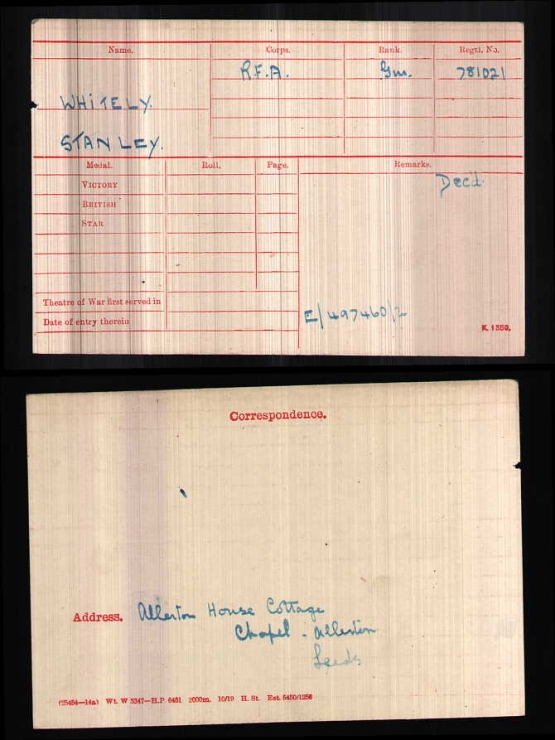 Name. Corps. Rank. Regtl. No.
R.F.A. Gnr. 781021
WHITELY.
STANLEY.
Medal. Roll. Page. Remarks.
VICTORY Decd.
BRITISH
STAR
Theatre of War first served in
E/497460/2
Date of entry therein
K. 1380.
Correspondence.
Address. Allerton House Cottage
Chapel - Allerton
Leeds
(25454—14a) Wt. W 5347—H.P. 6451 2000m. 10/19 H. St. Est. 5450/1250